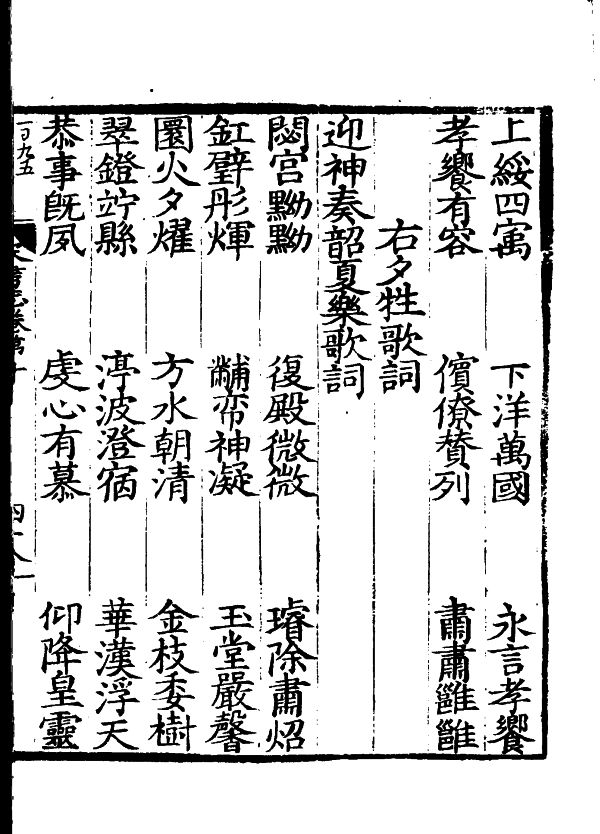 上綏四寓　下洋萬國　永言孝饗
孝饗有容　儐僚贊列　肅肅雝雝
右夕牲歌詞
迎神奏韶夏樂歌詞
閟宮黝黝　復殿微微　璿除肅炤
釭壁彤煇　黼帟神凝　玉堂嚴馨
圜火夕燿　方水朝清　金枝委樹
翠鐙竚縣　渟波澄宿　華漢浮天
恭事旣夙　虔心有慕　仰降皇靈
一百九五　書志卷第十